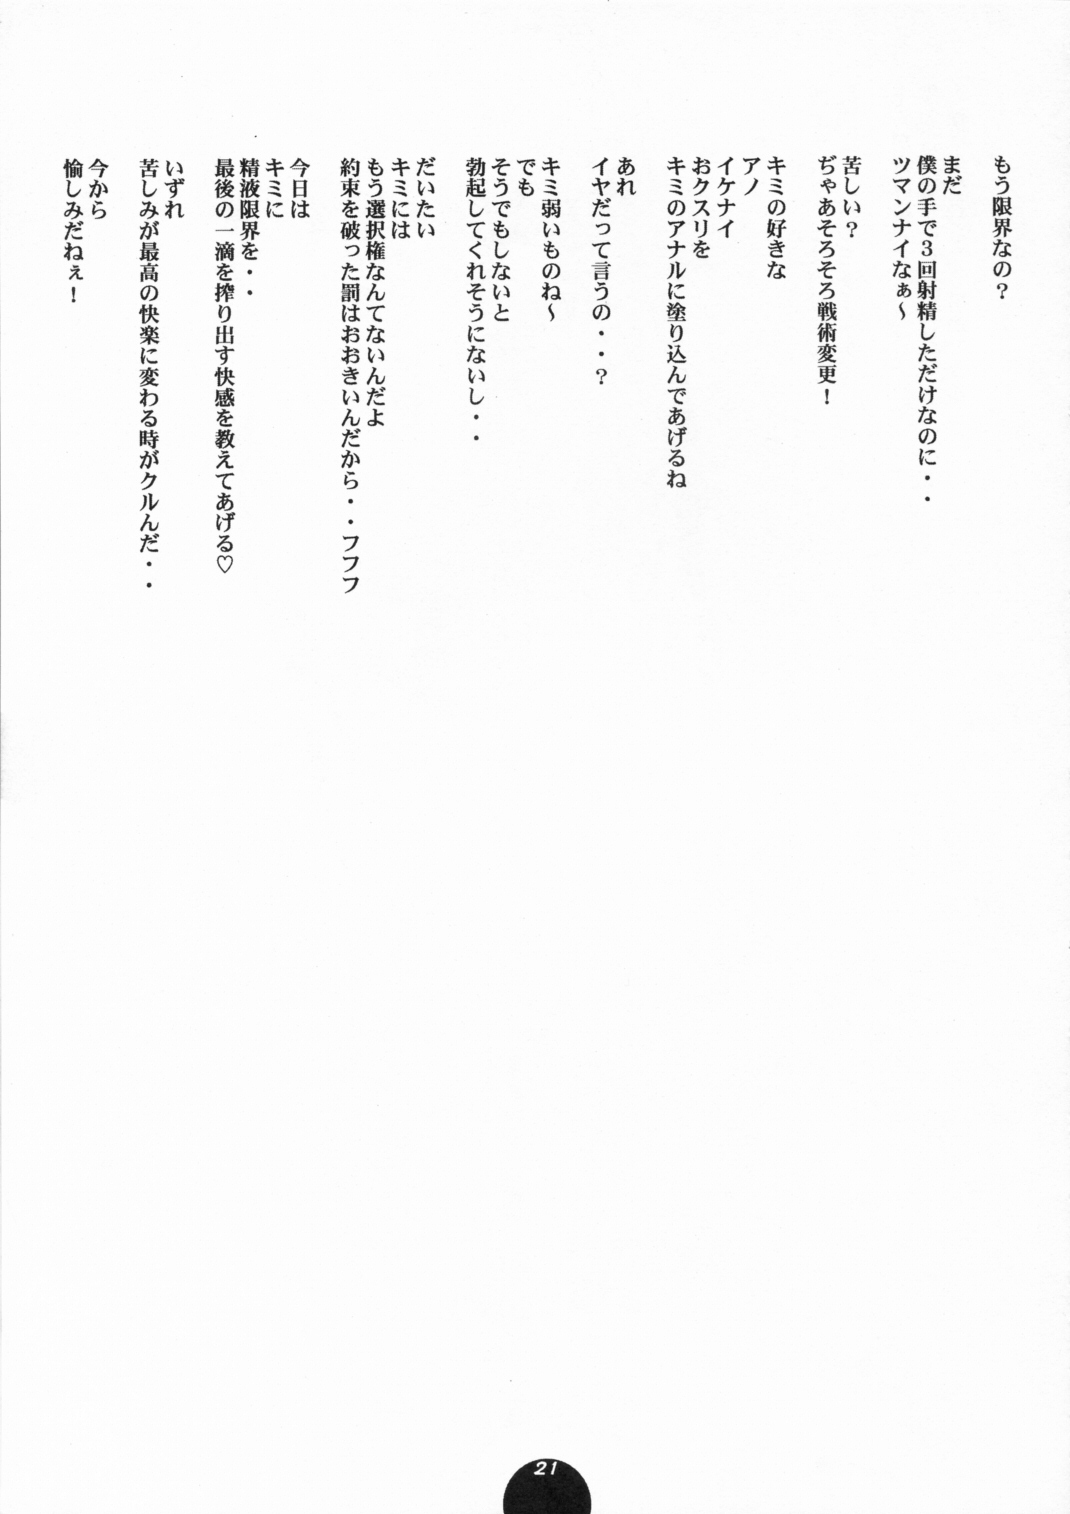 もう限界なの?
まだ
僕の手で3回射精しただけなのに・・
ツマンナイなぁ〜
苦しい?
ぢゃあそろそろ戦術変更!
キミの好きな
アノ
イケナイ
おクスリを
キミのアナルに塗り込んであげるね
あれ
イヤだって言うの・・?
キミ弱いものね〜
でも
そうでもしないと
勃起してくれそうにないし・・
だいたい
キミには
もう選択権なんてないんだよ
約束を破った罰はおおきいんだから・・フフフ
今日は
キミに
精液限界を・・
最後の一滴を搾り出す快感を教えてあげる♡
いずれ
苦しみが最高の快楽に変わる時がクルんだ・・
今から
愉しみだねぇ!
21